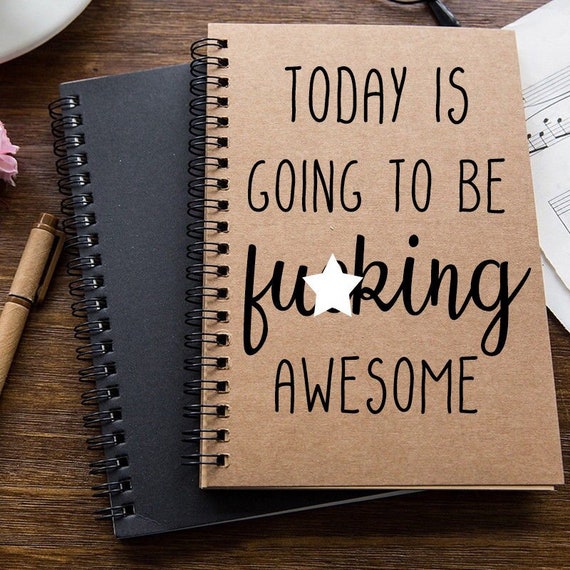 TODAY IS
GOING TO BE
fucking
AWESOME